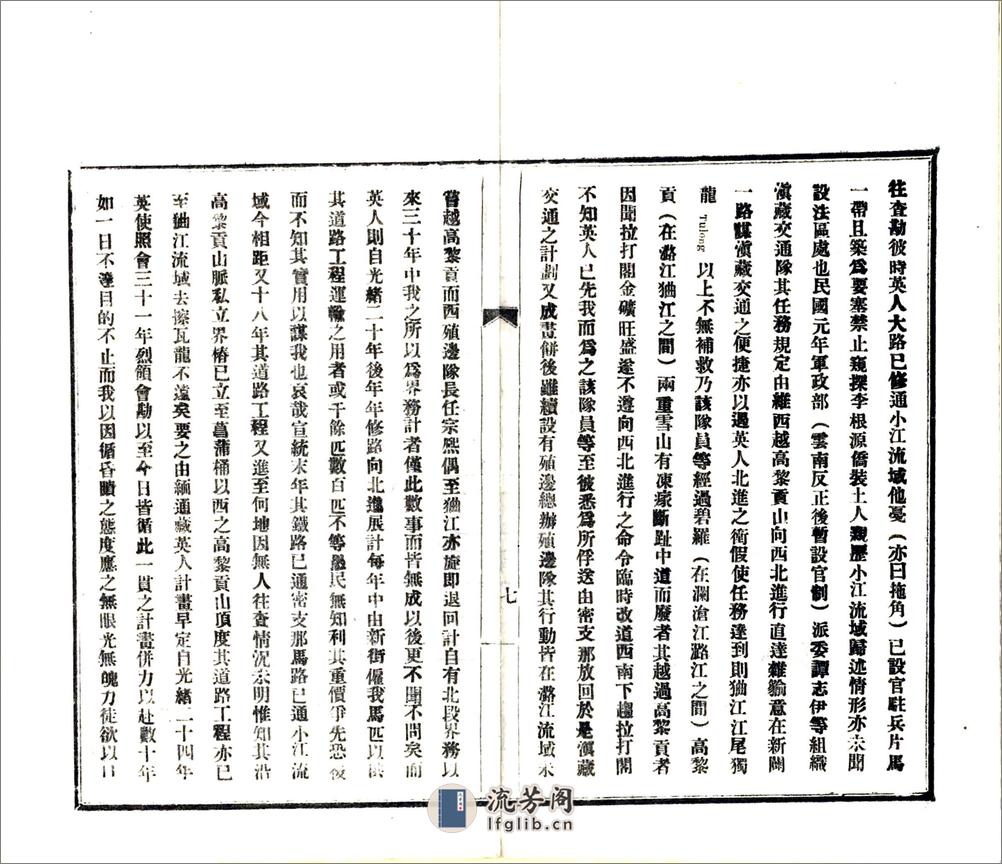 往查勘彼時英人大路已修通小江流域他戞（亦曰拖角）已設官駐兵片馬
一帶且築爲要塞禁止窺探李根源僑裝土人親歷小江流域歸述情形亦未聞
設法區處也民國元年軍政部（雲南反正後暫設官制）派委譚志伊等組織
滇藏交通隊其任務規定由維西越高黎貢山向西北進行直達雜貐意在新闢
一路謀滇藏交通之便捷亦以遏英人北進之衝假使任務達到則狪江江尾獨
龍 Tulong 以上不無補救乃該隊員等經過碧羅（在瀾滄江潞江之間）高黎
貢（在潞江狪江之間）兩重雪山有凍瘃斷趾中道而廢者其越過高黎貢者
因聞拉打閣金礦旺盛遂不遵向西北進行之命令臨時改道西南下趨拉打閣
不知英人已先我而爲之該隊員等至彼悉爲所俘送由密支那放回於是滇藏
交通之計劃又成畫餅後雖續設有殖邊總辦殖邊隊其行動皆在潞江流域未
七
嘗越高黎貢而西殖邊隊長任宗熙偶至狪江亦旋即退回計自有北段界務以
來三十年中我之所以爲界務計者僅此數事而皆無成以後更不聞不問矣而
英人則自光緒二十年後年年修路向北進展計每年中由新街僱我馬匹以供
其道路工程運輸之用者或千餘匹數百匹不等愚民無知利其重價爭先恐後
而不知其實用以謀我也哀哉宣統末年其鐵路已通密支那馬路已通小江流
域今相距又十八年其道路工程又進至何地因無人往查情況未明惟知其沿
高黎貢山脈私立界樁已立至菖蒲桶以西之高黎貢山頂度其道路工程亦已
至狪江流域去擦瓦龍不遠矣要之由緬通藏英人計畫早定自光緒二十四年
英使照會三十一年烈領會勘以至今日皆循此一貫之計畫併力以赴數十年
如一日不達目的不止而我以因循昏聵之態度應之無眼光無魄力徒欲以口
流芳阁
lfglib.cn